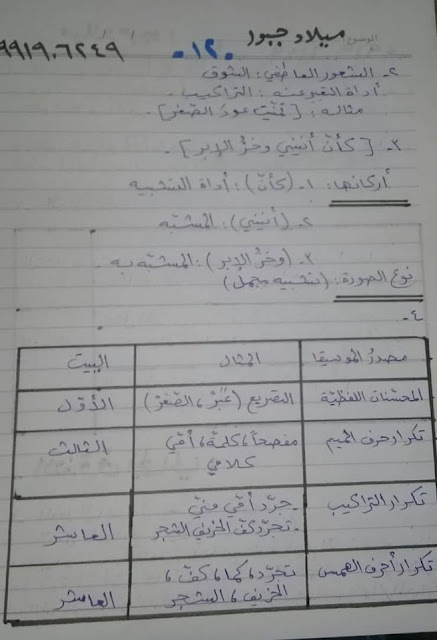 الموسوي ميلاد جبور -١٢٠- ٠٩٩١٩٠٦٢٤٩
٢- الشعور العاطفي: الشوق
أداة التعبير عنه: التراكيب.
مثاله: [تمنّيت عودَ الصّغر].
٣- [كأنّ أنيني وخزُ الإبر].
أركانها: ١- (كأنّ): أداة التشبيه
٢- (أنيني): المشبّه
٣- (وخزُ الإبر): المشبّه به.
نوع الصورة: (تشبيه مجمل)
٤-
مصدرُ الموسيقا | المثال | البيت
المحسّنات اللفظيّة | التصريع (عَبَرْ، الصّغرْ) | الأوّل
تكرار حرف الميم | مفصحاً، كلمة، أمّي
كلامي | الثالث
تكرار التراكيب | - جرّد أمّي منّي
- تجرّد كفّ الخريف الشجر | العاشر
تكرار أحرف الهمس | تجرّد، كما، كفّ،
الخريف، الشجر | العاشر